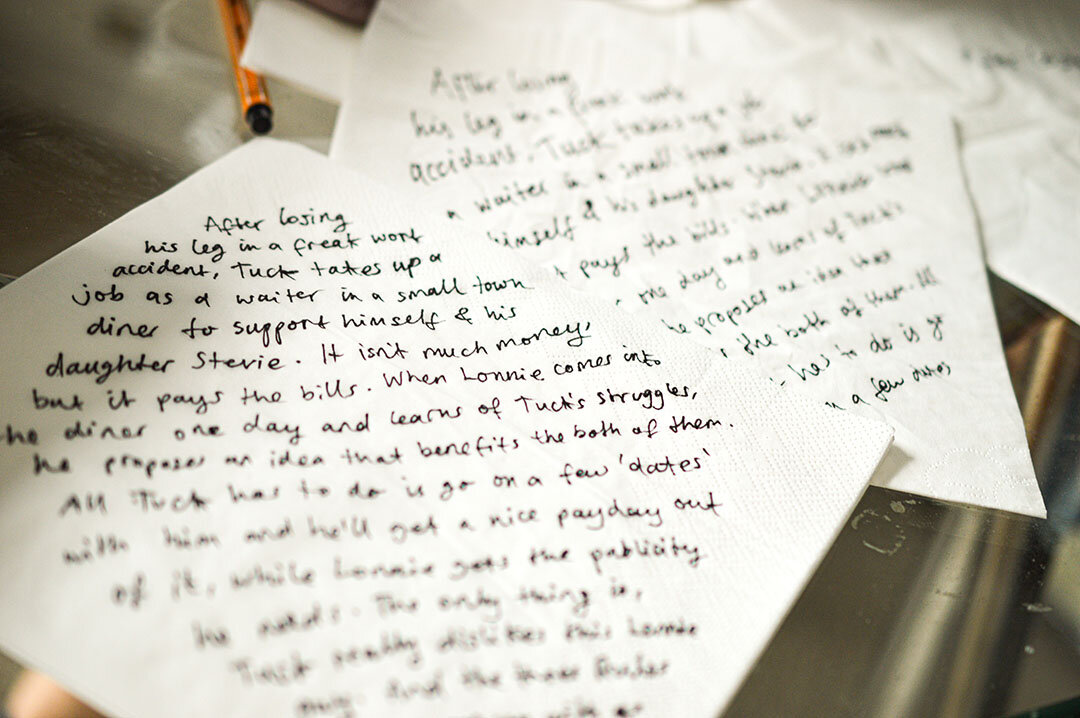 After losing
his leg in a freak work
accident, Tuck takes up a
job as a waiter in a small town
diner to support himself & his
daughter Stevie. It isn't much money,
but it pays the bills. When Lonnie comes into
he diner one day and learns of Tuck's struggles,
he proposes an idea that benefits the both of them.
All Tuck has to do is go on a few 'dates'
with him and he'll get a nice payday out
of it, while Lonnie gets the publicity
he needs. The only thing is,
Tuck really dislikes this Lonnie
guy. And the more
After losing
his leg in a freak work
accident, Tuck takes up a job
a waiter in a small town diner to
himself & his daughter Stevie. It isn't much
t pays the bills. When Lonnie comes
one day and learns of Tuck's
he proposes an idea that
the both of them. All
has to do is go
n a few dates